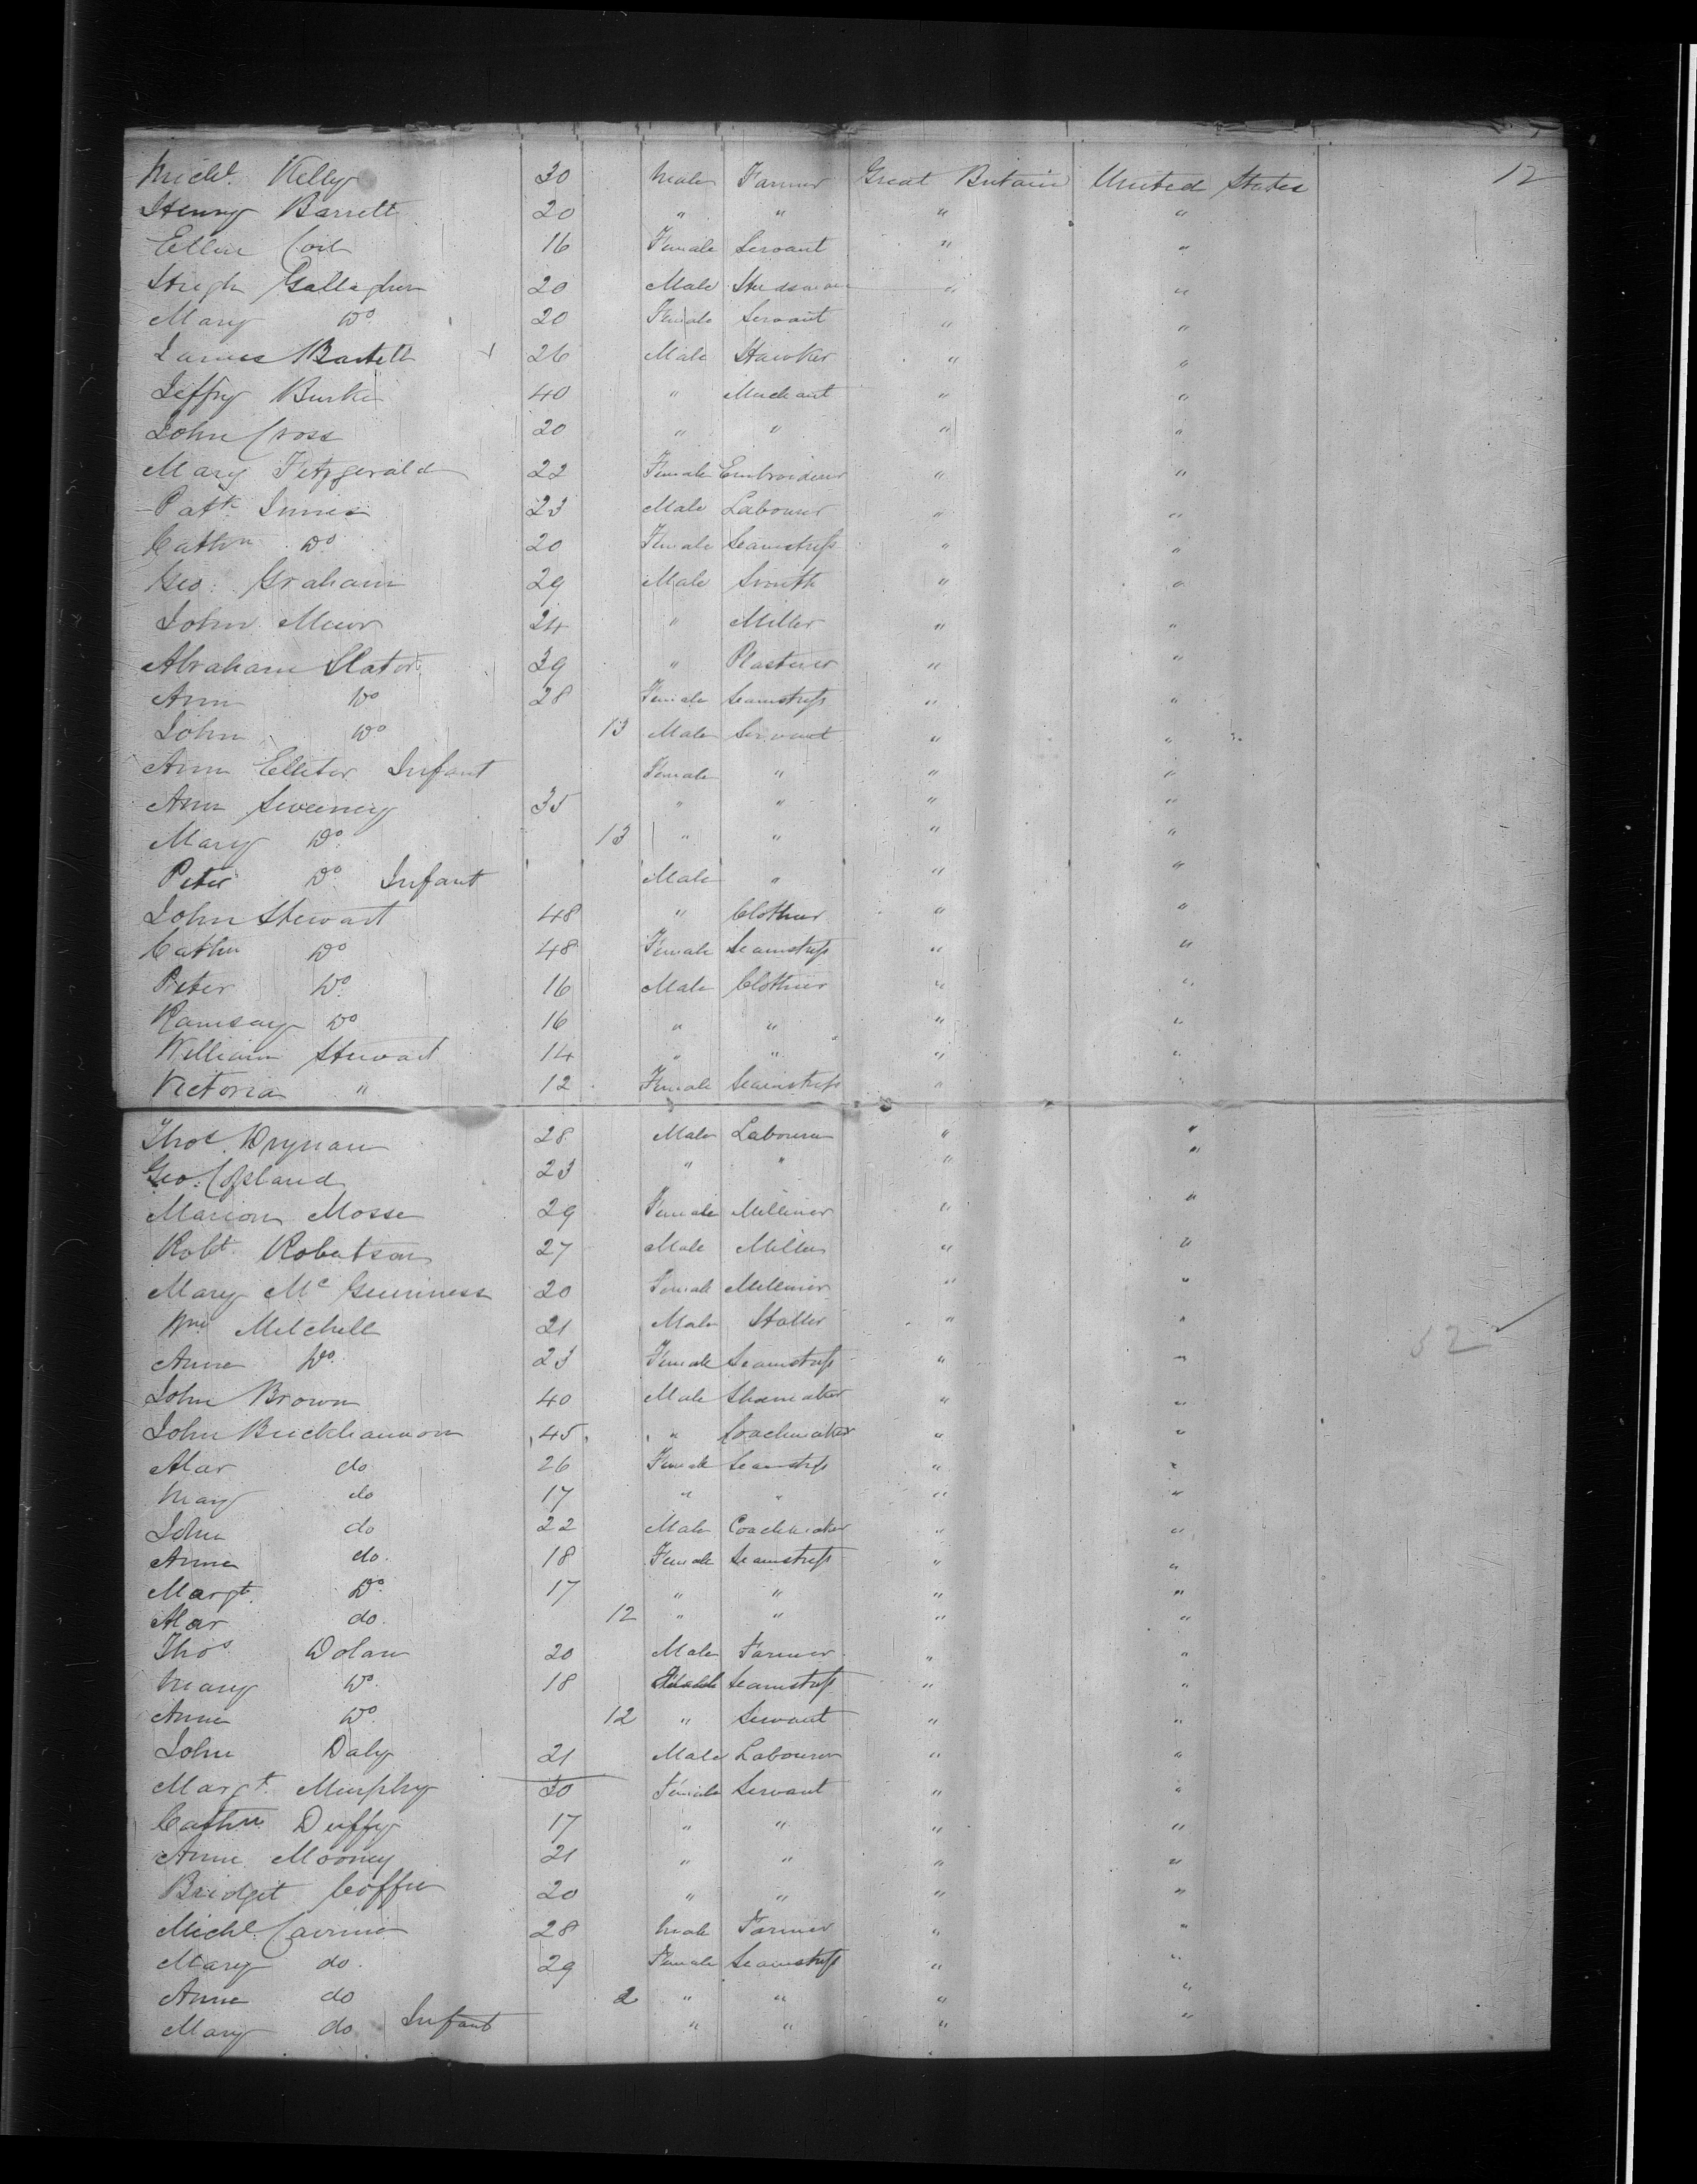 Michl. Kelly 30 Male Farmer Great Britain United States 12
Henry Barrett 20 " " " "
Ellen Coil 16 Female Servant " "
Hugh Gallagher 20 Male Herdsman " "
Mary Do 20 Female Servant " "
James Bartell 26 Male Hawker " "
Jeffry Burke 40 " Merchant " "
John Cross 20 " " " "
Mary Fitzgerald 22 Female Embroiderer " "
Patk. 23 Male Labourer " "
Cathn Do 20 Female Seamstress " "
Geo: Graham 29 Male Smith " "
John Muir 24 " Miller " "
Abraham Slator 39 " Plasterer " "
Ann Do 28 Female Seamstress " "
John Do 13 Male Servant " "
Ann Infant Female " " "
Ann Sweeney 35 " " " "
Mary Do 13 " " " "
Peter Do Infant Male " " "
John Stewart 48 " Clothier " "
Cathn Do 48 Female Seamstress " "
Peter Do 16 Male Clothier " "
Ramsay Do 16 " " " "
William Stewart 14 " " " "
Victoria " 12 Female Seamstress " "
Thos Drynan 28 Male Labourer " "
Geo: Copland 23 " " " "
Marion Mosse 29 Female Milliner " "
Robt. Robertson 27 Male Miller " "
Mary Mc Guinness 20 Female Milliner " "
Wm. Mitchell 21 Male " "
Anne Do 23 Female Seamstress " " 52
John Brown 40 Male Shoemaker " "
John Buckhannon 45 " Coachmaker " "
Mar do 26 Female Seamstress " "
Mary do 17 " " " "
John do 22 Male Coachmaker " "
Anne do. 18 Female Seamstress " "
Margt. Do 17 " " " "
Mar do. 12 " " " "
Thos Dolan 20 Male Farmer " "
Mary Do 18 Female Seamstress " "
Anne Do 12 " Servant " "
John Daly 21 Male Labourer " "
Margt. Murphy 30 Female Servant " "
Cathn Duffy 17 " " " "
Anne Mooney 21 " " " "
Bridget Coffee 20 " " " "
Michl. 28 Male Farmer " "
Mary do. 29 Female Seamstress " "
Anne do 2 " " " "
Mary do Infant " " " "